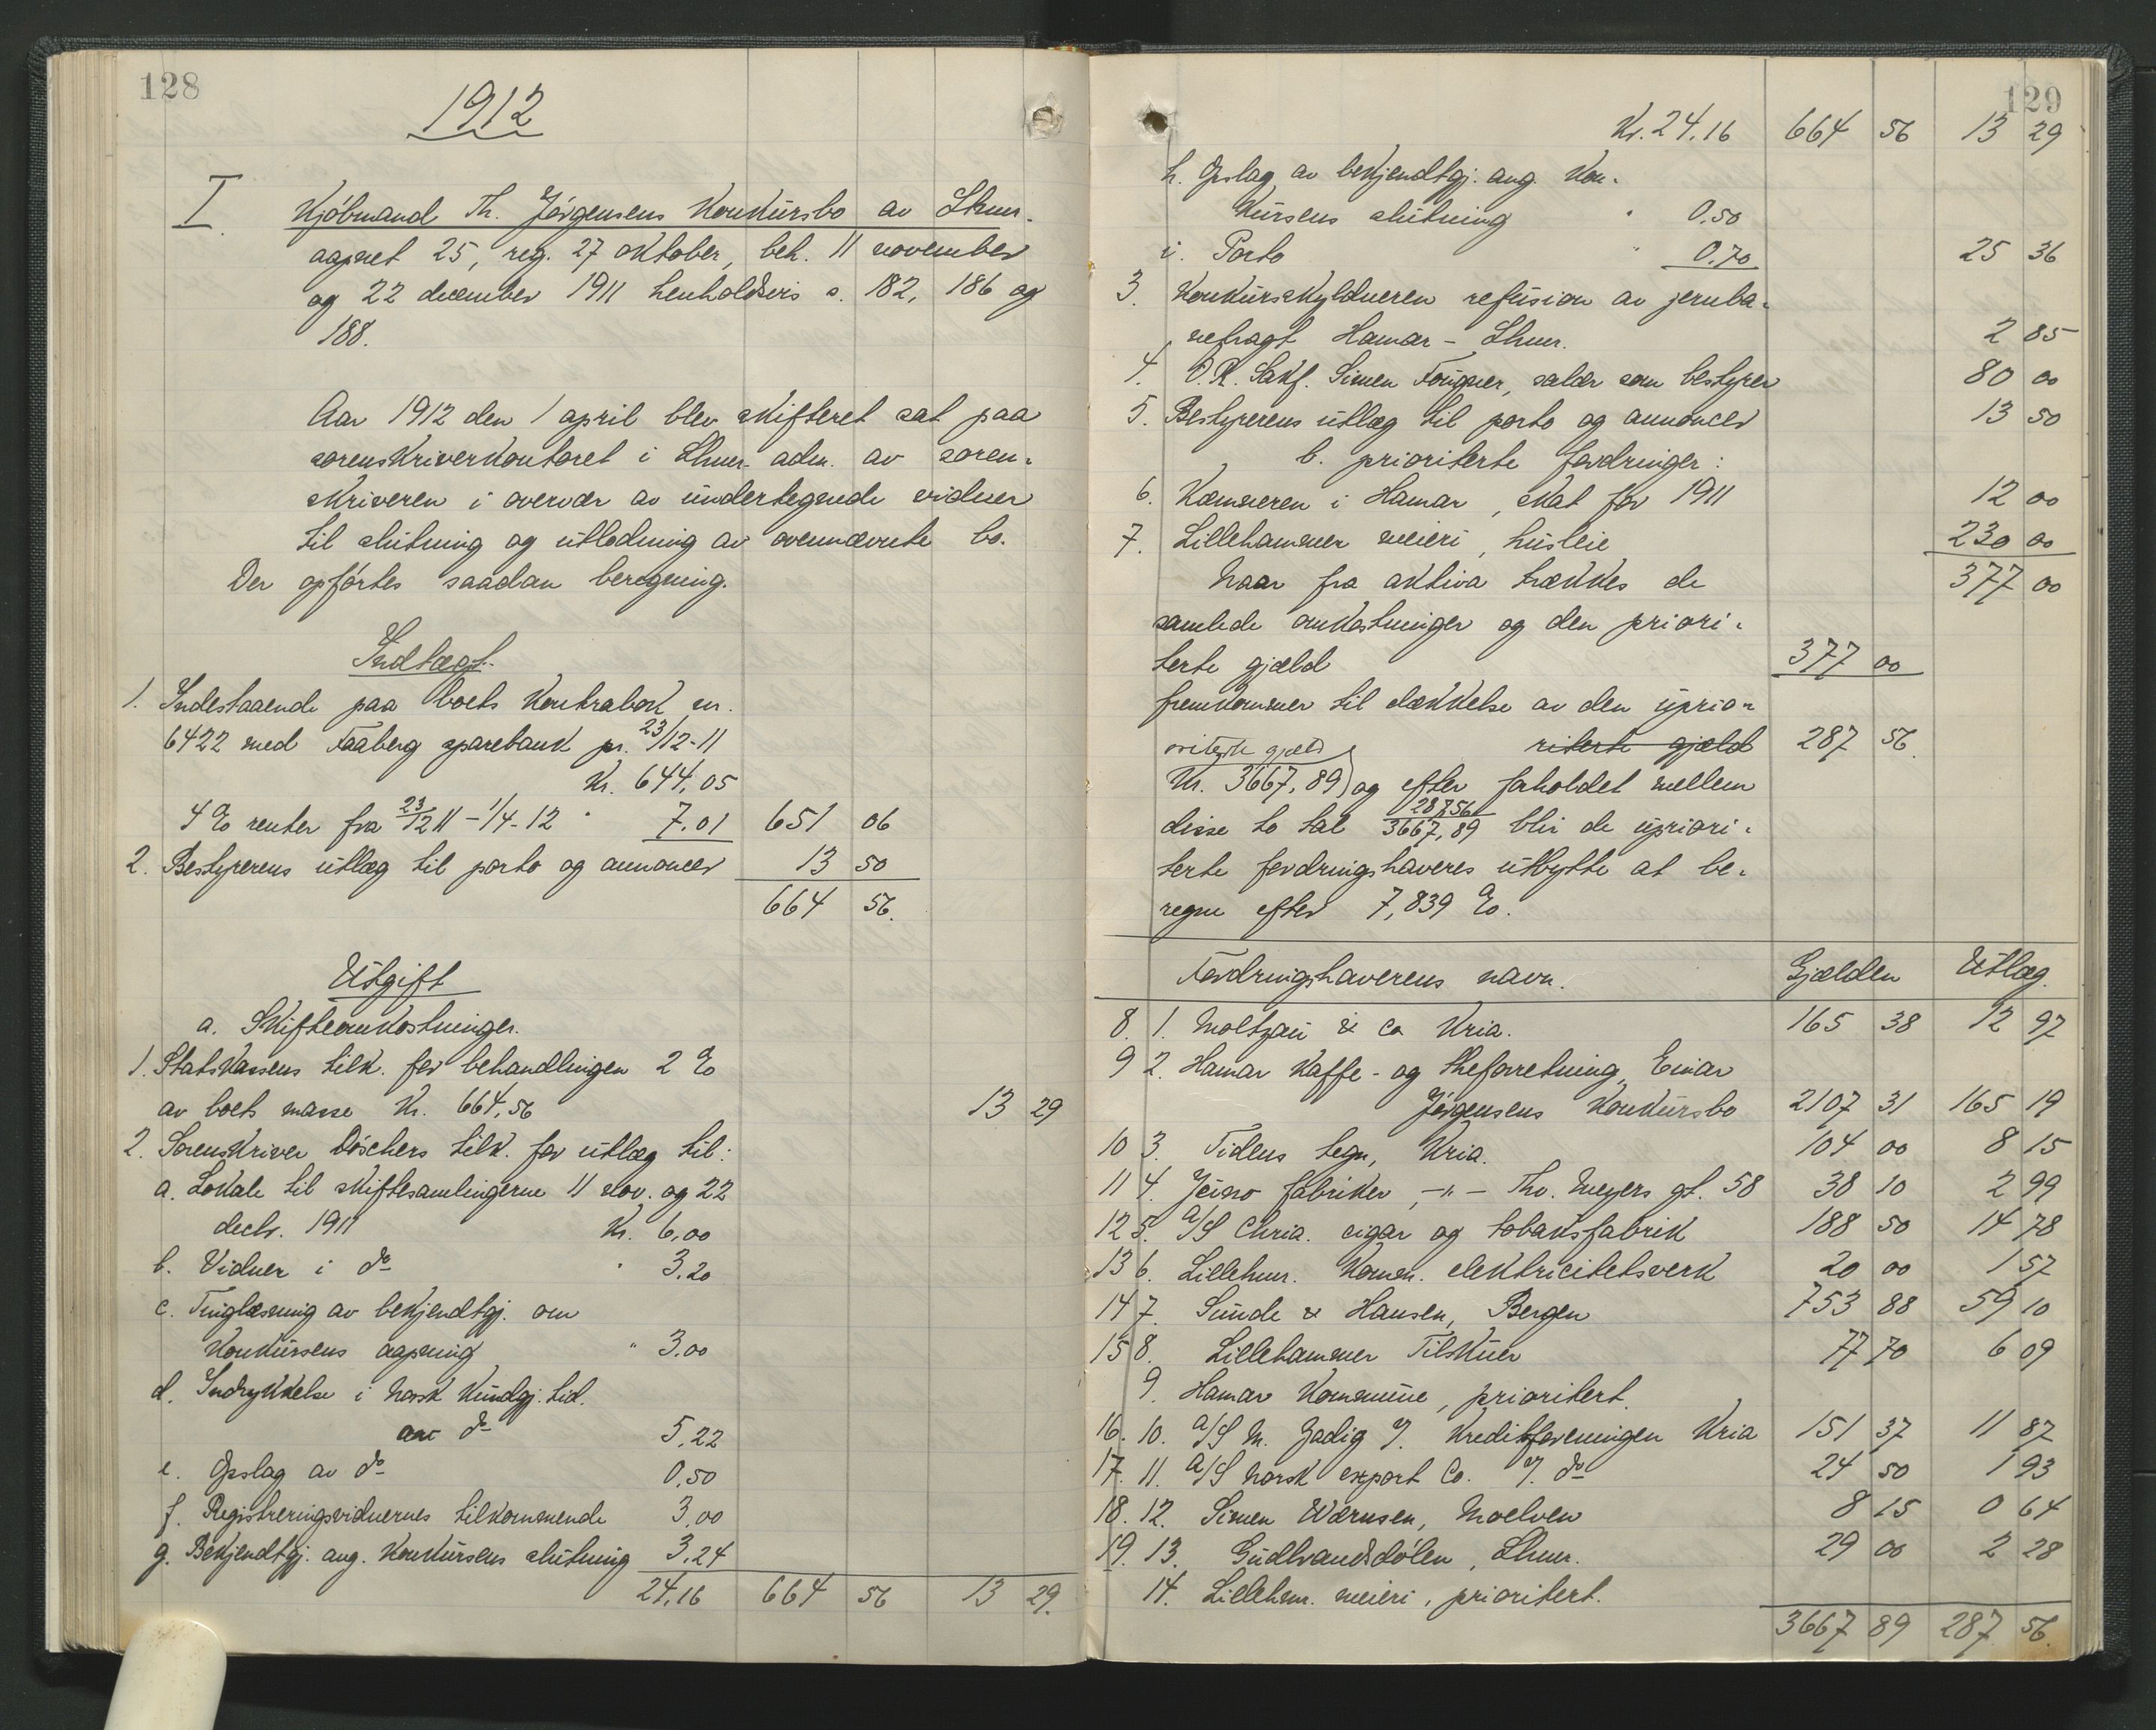 128
1912
I. Kjöbmand Th. Jörgensens Konkursbo av Lhmr.
aapnet 25, reg. 27 oktober, beh. 11 november
og 22 december 1911 henholdsvis s. 182, 186 og
188.
Aar 1912 den 1 april blev skifteret sat paa
sorenskriverkontoret i Lhmr. adm. av soren-
skriveren i overvær av undertegnede vidner
til slutning og utlodning av ovennævnte bo.
Der opförtes saadan beregning.
Indtægt.
1. Indestaaende paa boets Kontrabok nr.
6422 med Faaberg sparebank pr. 23/12-11
Kr. 644,05
4 % renter fra 23/12 11 - 1/4-12 " 7.01 651 06
2. Bestyrerens utlæg til porto og annoncer 13 50
664 56.
Utgift
a. Skifteomkostninger.
1. Statskassens tilk. for behandlingen 2 %
av boets masse Kr. 664,56 13 29
2. Sorenskriver Löschers tilk. for utlæg til:
a. Lokale til skiftesamlingerne 11 nov. og 22
decbr. 1911 Kr. 6,00
b. Vidner i do " 3.20
c. Tinglæsning av bekjendtgj. om
Konkursens aapning " 3.00
d. Indrykkelse i Norsk Kundgj. tid.
av do 5,22
e. Opslag av do 0,50
f. Registreringsvidnernes tilkommende 3,00
g. Bekjendtgj. ang. Konkursens slutning 3,24
24,16 664 56 13 29.
129
Kr. 24,16 664 56 13 29
h. Opslag av bekjendtgj. ang. Kon-
kursens slutning " 0,50
i. Porto " 0.70 25 36
3. Konkursskyldneren refusion av jernba-
nefragt Hamar - Lhmr. 2 85
4. O.R. Sakf. Simen Fougner, salær som bestyrer 80 00
5. Bestyrerens utlæg til porto og annoncer 13 50
b. prioriterte fordringer:
6. Kæmneren i Hamar, skat for 1911 12 00
7. Lillehammer meieri, husleie 230 00
Naar fra aktiva trækkes de 377 00
samlede omkostninger og den priori-
terte gjæld 377 00
fremkommer til dækkelse av den uprio-
riterte gjæld riterte gjæld 287 56
Kr. 3667,89) og efter forholdet mellem
disse to tal 287,56/3667,89 blir de upriori-
terte fordringshaveres utbytte at be-
regne efter 7,839 %.
Fordringshaverens navn. Gjælden Utlæg.
8. 1. Moltzau & Co Kria. 165 38 12 97
9 2. Hamar Kaffe- og theforretning, Einar
Jörgensens Konkursbo 2107 31 165 19
10 3. Tidens tegn, Kria. 104 00 8 15
11 4. Jeino fabriker, -"- Thv. Meyers gt. 58 38 10 2 99
12 5. A/S Chria. cigar og tobaksfabrik 188 50 14 78
13 6. Lillehmr. Komm. elektricitetsverk 20 00 1 57
14 7. Sunde & Hansen, Bergen 753 88 59 10
15 8. Lillehammer Tilskuer 77 70 6 09
9. Hamar Kommune, prioritert.
16. 10. A/S M. Zadig v/ Kreditforeningen Kria 151 37 11 87
17. 11. A/S Norsk export Co. v/ do 24 50 1 93
18. 12. Simen Wærnsen, Moelven 8 15 0 64
19. 13. Gudbrandsdölen, Lhmr. 29 00 2 28
14. Lillehmr. meieri, prioritert.
3667 89 287 56.